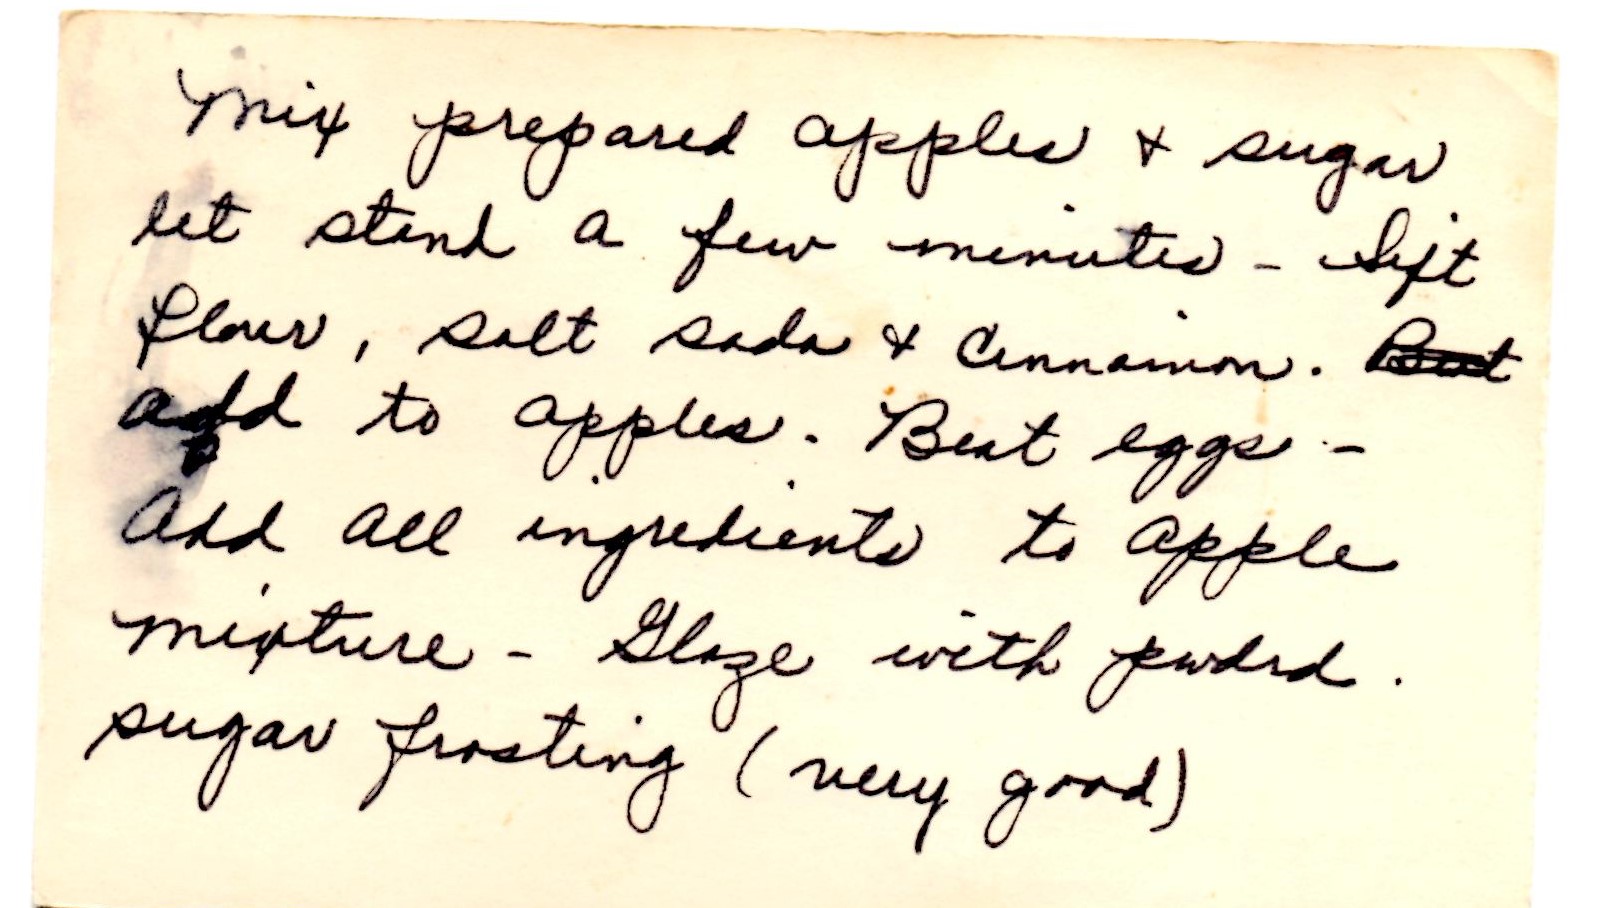 Mix prepared apples & sugar
let stand a few minutes - Sift
flour, salt soda & cinnamon. Beat
add to apples. Beat eggs -
Add all ingredients to apple
mixture - Glaze with pwdrd.
sugar frosting (very good)